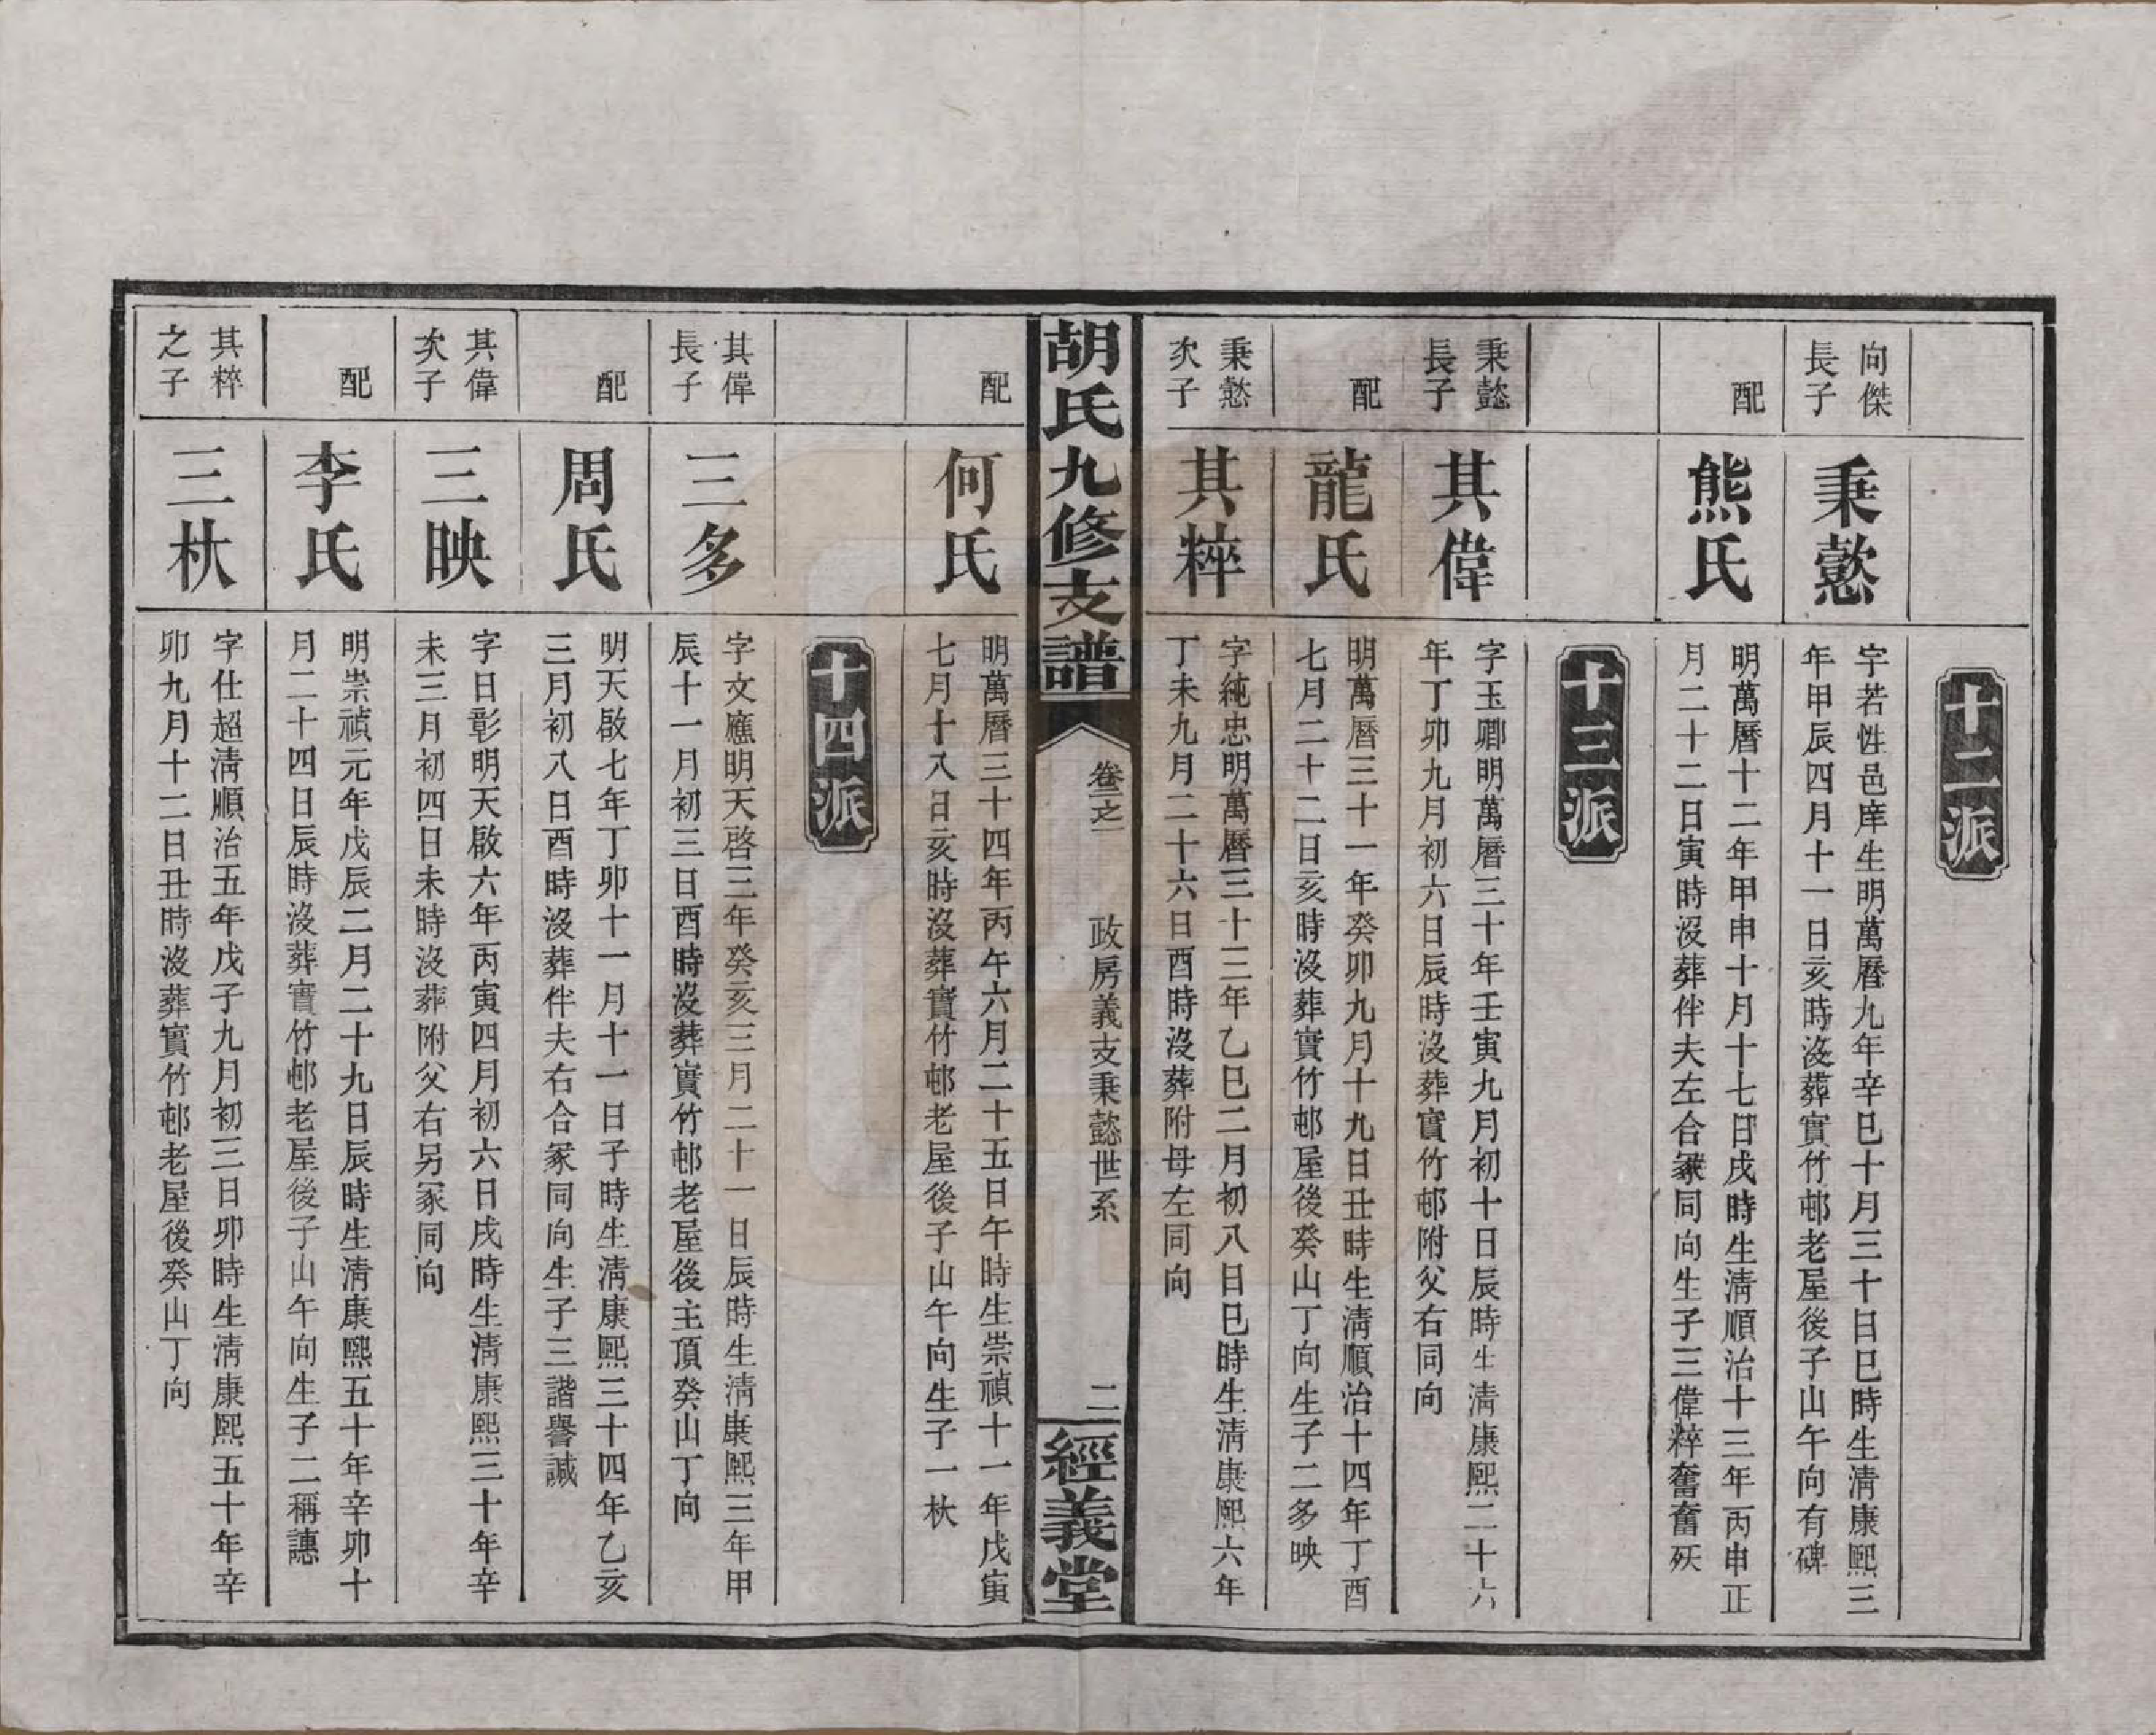 十二派
向傑
長子
秉懿
字若性邑庠生明萬曆九年辛巳十月三十日巳時生清康熙三
年甲辰四月十一日亥時沒葬實竹邨老屋後子山午向有碑
配
熊氏
明萬曆十二年甲申十月十七日戌時生清順治十三年丙申正
月二十二日寅時沒葬伴夫左合冢同向生子三偉粹奮奮殀
十三派
秉懿
長子
其偉
字玉卿明萬曆三十年壬寅九月初十日辰時生清康熙二十六
年丁卯九月初六日辰時沒葬實竹邨附父右同向
配
龍氏
明萬曆三十一年癸卯九月十九日丑時生清順治十四年丁酉
七月二十二日亥時沒葬實竹邨屋後癸山丁向生子二多映
秉懿
次子
其粹
字純忠明萬曆三十三年乙巳二月初八日巳時生清康熙六年
丁未九月二十六日酉時沒葬附母左同向
胡氏九修支譜
卷三之一
政房義支秉懿世系
二
經義堂
配
何氏
明萬曆三十四年丙午六月二十五日午時生崇禎十一年戊寅
七月十八日亥時沒葬實竹邨老屋後子山午向生子一杕
十四派
其偉
長子
三多
字文應明天啓三年癸亥三月二十一日辰時生清康熙三年甲
辰十一月初三日酉時沒葬實竹邨老屋後主頂癸山丁向
配
周氏
明天啟七年丁卯十一月十一日子時生清康熙三十四年乙亥
三月初八日酉時沒葬伴夫右合冢同向生子三諧譽諴
其偉
次子
三映
字日彰明天啟六年丙寅四月初六日戌時生清康熙三十年辛
未三月初四日未時沒葬附父右另冢同向
配
李氏
明崇禎元年戊辰二月二十九日辰時生清康熙五十年辛卯十
月二十四日辰時沒葬實竹邨老屋後子山午向生子二稱譓
其粹
之子
三杕
字仕超清順治五年戊子九月初三日卯時生清康熙五十年辛
卯九月十二日丑時沒葬實竹邨老屋後癸山丁向